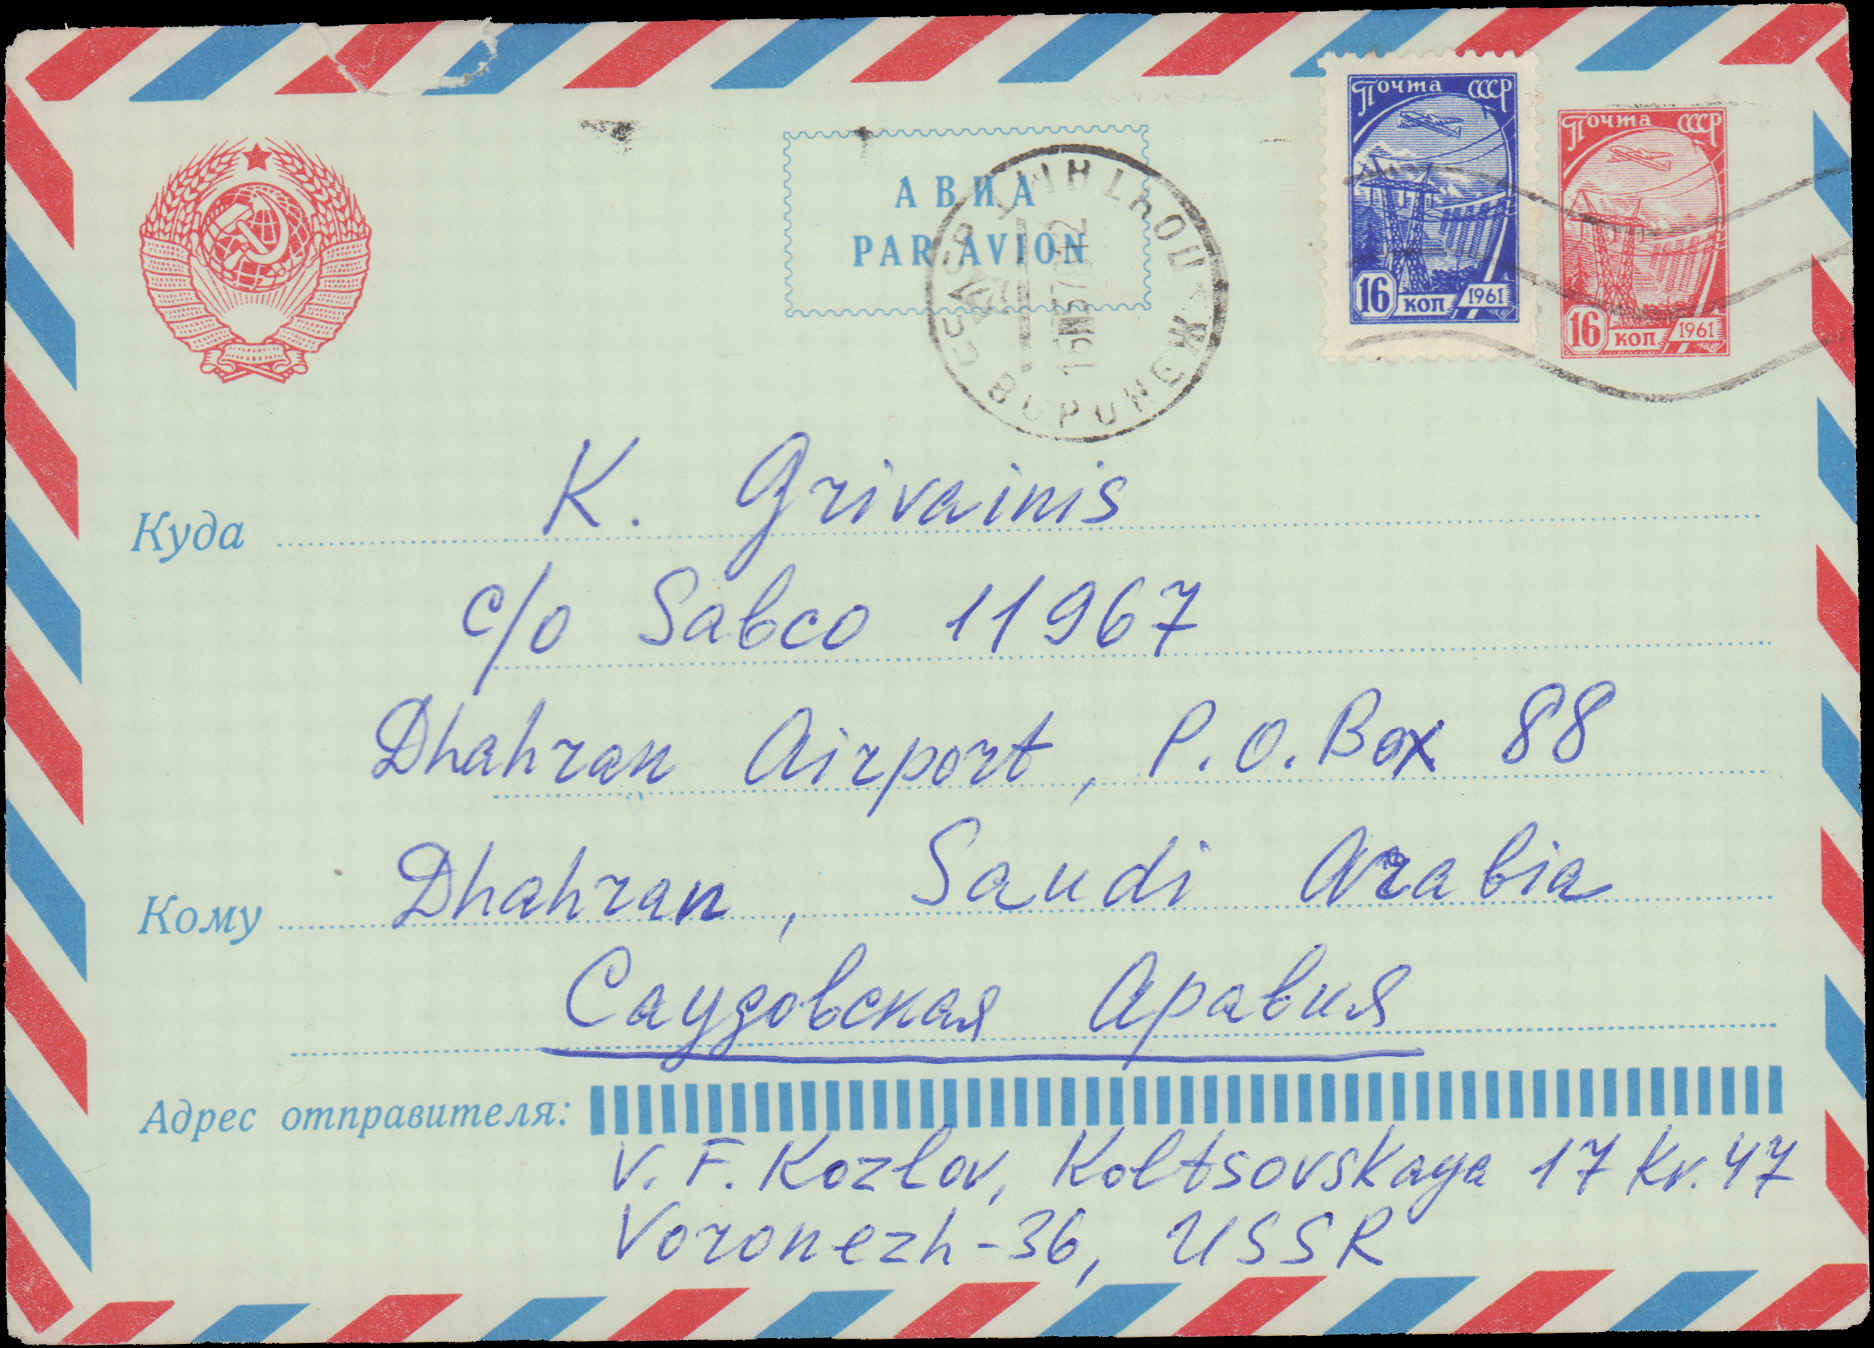 Почта СССР
16 коп 1961
Почта СССР
16 коп 1961
АВИА
PAR AVION
СССР ПОЧТАМТ
ВОРОНЕЖ
Куда
K. Grivainis
c/o Sabco 11967
Dhahran Airport, P.O. Box 88
Кому
Dhahran, Saudi Arabia
Саудовская Аравия
Адрес отправителя:
V. F. Kozlov, Koltsovskaya 17 kv. 47
Voronezh-36, USSR